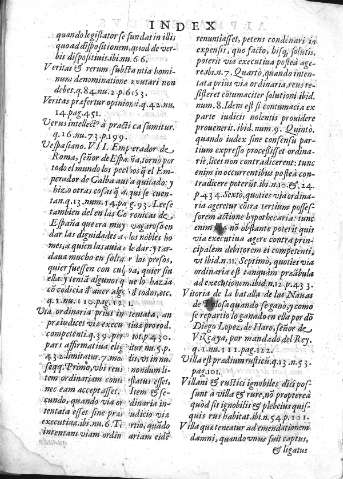 INDEX
quando legislator se fundat in illis
quo ad dispositionem, quod de ver-
bis dispositiuis. ibi. nu. 66.
Veritas & rerum substantia homi-
num denominatione exutari non
debet. q. 84. nu. 2. p. 653.
Veritas præfertur opinioni. q. 42. nu.
14. pag. 451.
Verus intellect9 à practica sumitur.
q. 16. nu. 73. p. 199.
Vespasiano. VII. Emperador de
Roma, señor de España, tornò por
todo el mundo los por el Em-
perador de Galba auia quitado: y
hizo otras cosas que se cuen-
tan. q. 13. nu. 14. pag. 93. Leese
tambien del en las Coronicas de
España que era muy vagaroso en
dar las dignidades a los nobles ho-
mes, a quien las auia de dar. Y ar-
daua mucho en soltar los presos,
quier fuessen con culpa, quier sin
ella: y tenia algunos que lo hazia
cõ cudicia de auer algo todo, etc.
q. 1. nu. 110. pag. 121.
Via ordinaria prius intentata, an
præiudicet viæ executiuæ postea
competenti. q. 39. per tot. p. 430.
pars affirmatiua nu. 5. p.
432. limitatur. 7. modis, vt in nu.
seqq. Primo, vbi renundum li-
tem ordinariam contestatus esset,
nec eam acceptasset. Item & se-
cundo, quando via ordinaria in-
tentata esset sine præiudicio viæ
executiuæ. ibi. nu. 6. Tertio, quãdo
intentans viam ordinariam eidē
renuntiasset, petens condenari in
expensis, quo facto, bisq, solutis,
poterit via executiua postea age-
re. ibi. n. 7. Quartò, quando inten-
tata prius via ordinaria, reus te-
sisseret cõtumaciter solutioni ibid.
num. 8. Idem est si contumacia ex
parte iudicis nolentis prouidere
prouenerit. ibid. num. 9. Quintò,
quando iudex sine consensu par-
tium expresso processisset ordina-
riè, licet non contradicerent: tunc
enim in occurrentibus posteà con-
tradicere poterit. ibi. n. 10. & 24.
p. 434. Sextò, quoties via ordina-
ria agertur cõtra tertium posses-
sorem actione hypothecaria: tunc
enim no obstante poterit quis
via executiua agere contra prin-
cipalem debitorem ei competenti,
vt ibid. n. 11. Septimò, quoties via
ordinaria est tanquam præabula
ad executionem. ibid. n. 12. p. 433.
Vitoria de la batalla de las Nauas
de Tolosa quando se gano, y como
se repartio lo ganado en ella por dõ
Diego Lopez, de Haro, señor de
Vizcaya, por mandado del Rey.
q. 1. nu. 111. pag. 122.
Villa est prædium rusticũ. q. 13. n. 53.
pag. 101.
Villani & rustici ignobiles dicti pos-
sunt à villa & rure, nõ proptereà
quòd sit ignobilis & plebeius quis-
quis rus habitat. ibi. n. 54. p. 101.
Villa qua teneatur ad emendationem
damni, quando vnus suit captus,
& ligatus